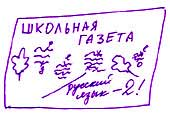 ШКОЛЬНАЯ
ГАЗЕТА
русский
язык -2!